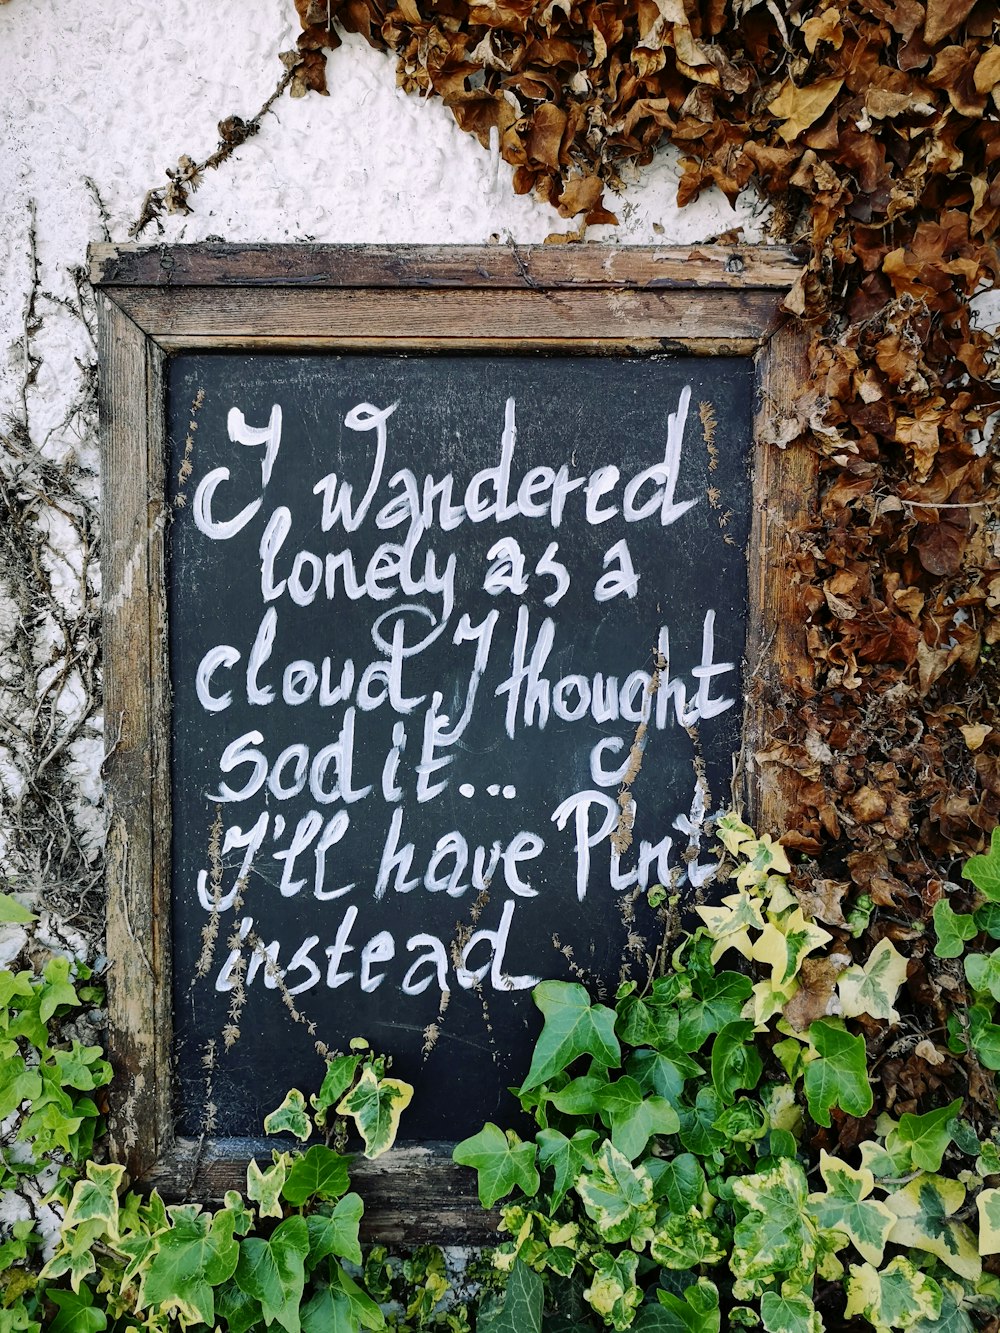 I Wandered
lonely as a
cloud, I thought
sod it...
I'll have a Pint
instead